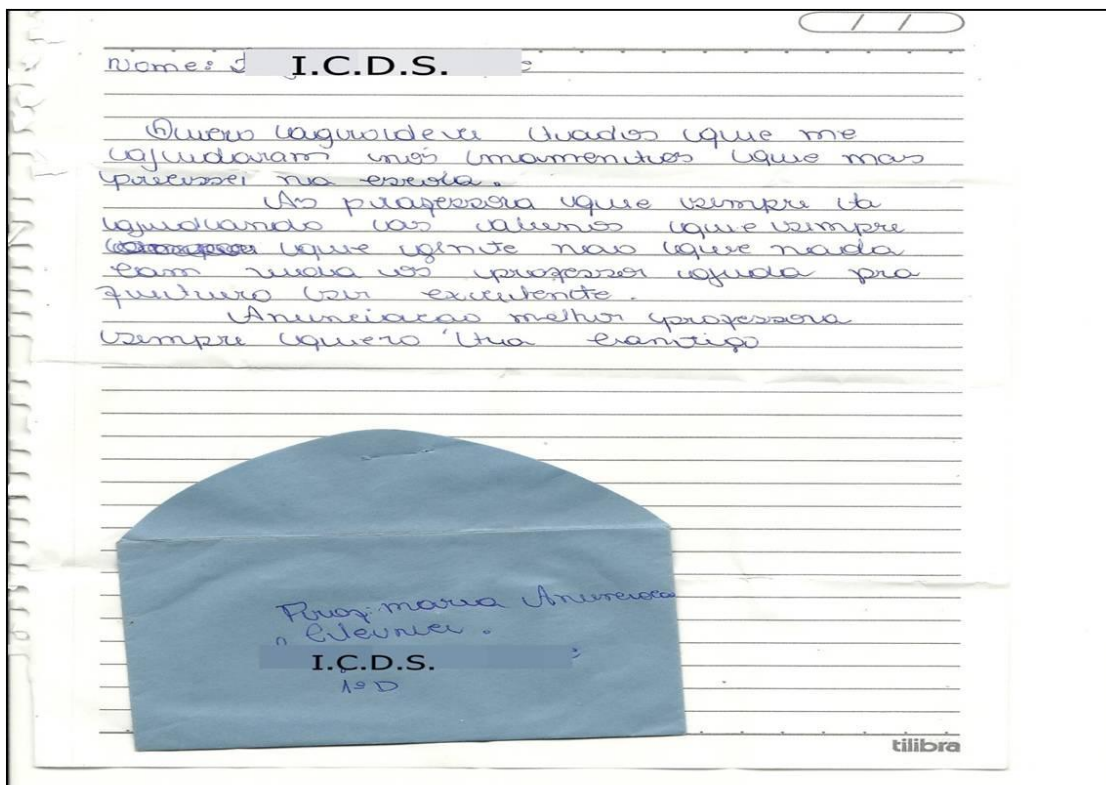 / /
Nome: I.C.D.S.
Quero agradecer tuados que me
ajudaram nos momentos que mas
precissei na escola.
As professora que sempre ta
ajudando os alunos que sempre
que gente nao que nada
com nada os professor ajuda pra
futuro ser
Anunciacao melhor professora
sempre quero tua comtigo
Prof: maria Anunciacao
I.C.D.S.
1º D
tilibra